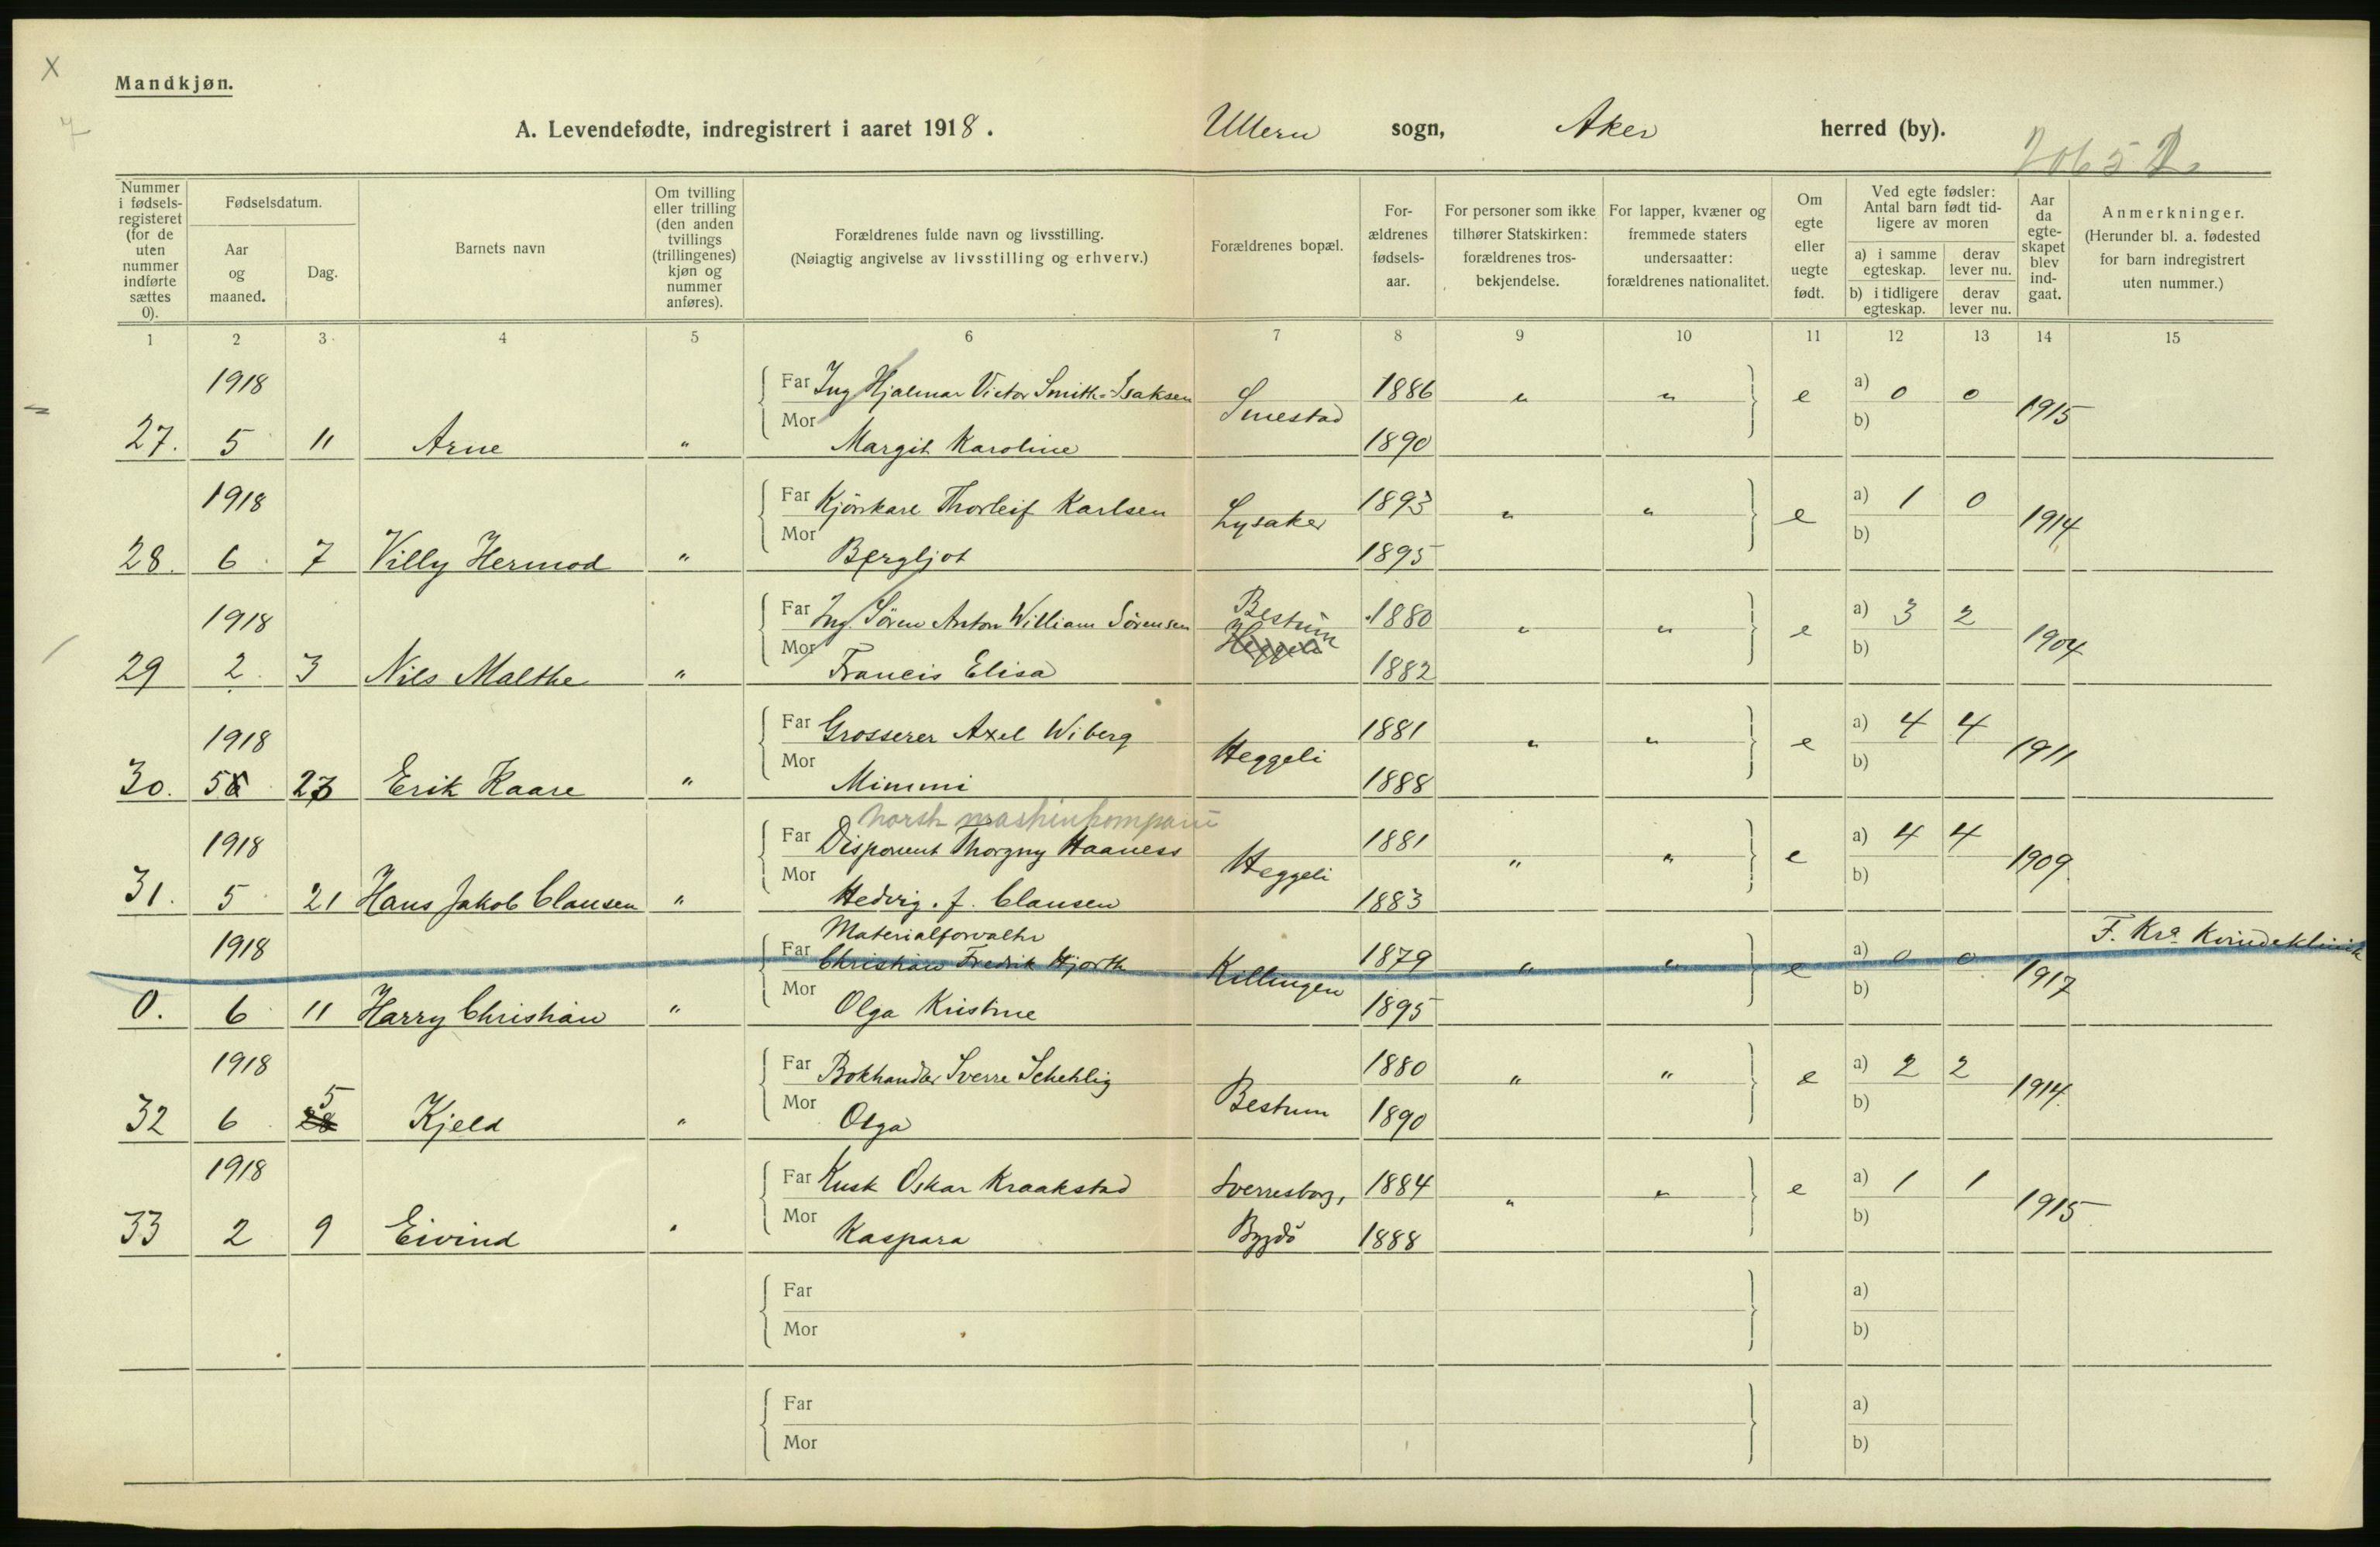 X
Mandkjøn.
A. Levendefødte, indregistrert i aaret 1918. Ullern sogn, Aker herred (by).
Nummer i fødsels-registeret (for de uten nummer indførte sættes 0).
Fødselsdatum.
Aar og maaned.
Dag.
Barnets navn
Om tvilling eller trilling (den anden tvillings (trillingenes) kjøn og nummer anføres).
Forældrenes fulde navn og livsstilling.
(Nøiagtig angivelse av livsstilling og erhverv.)
Forældrenes bopæl.
For-ældrenes fødsels-aar.
For personer som ikke tilhører Statskirken: forældrenes tros-bekjendelse.
For lapper, kvæner og fremmede staters undersaatter: forældrenes nationalitet.
Om egte eller uegte født.
Ved egte fødsler: Antal barn født tid-ligere av moren
a) i samme egteskap.
derav lever nu.
b) i tidligere egteskap.
derav lever nu.
Aar da egte-skapet blev ind-gaat.
Anmerkninger.
(Herunder bl. a. fødested for barn indregistrert uten nummer.)
1 2 3 4 5 6 7 8 9 10 11 12 13 14 15
1918 Far Ing Hjalmar Victor Smith-Isaksen Smestad 1886 " " e a) 0 0 1915
27. 5 11 Arne " Mor Margit Karoline 1890 b)
1918 Far Kjørekare Thorleif Karlsen Lysaker 1893 " " e a) 1 0 1914
28. 6 7 Villy Hermod " Mor Bergljot 1895 b)
1918 Far Ing. Sören Anton William Sörensen Bestum Heggeli 1880 " " e a) 3 2 1904
29 2 3 Nils Malthe " Mor Francis Elisa 1882 b)
1918 Far Grosserer Axel Wiberg Heggeli 1881 " " e a) 4 4 1911
30. 5 23 Erik Kaare " Mor Mimmi 1888 b)
Norsk maskinkompani
1918 Far Disponent Thorgny Haaness Heggeli 1881 " " e a) 4 4 1909
31. 5 21 Hans Jakob Clausen " Mor Hedvig. f. Clausen 1883 b)
Materialforvalter
1918 Far Christian Fredrik Hjorth Killingen 1879 " " e a) 0 0 1917 F. Kra Kvindeklinik
0. 6 11 Harry Christian " Mor Olga Kristine 1895 b)
1918 Far Bokhandler Sverre Schehlig Bestum 1880 " " e a) 2 2 1914
32 6 28 5 Kjeld " Mor Olga 1890 b)
1918 Far Kusk Oskar Kraakstad Sverresborg, 1884 " " e a) 1 1 1915
33 2 9 Eivind " Mor Kaspara Bygdö 1888 b)
Far a)
Mor b)
Far a)
Mor b)